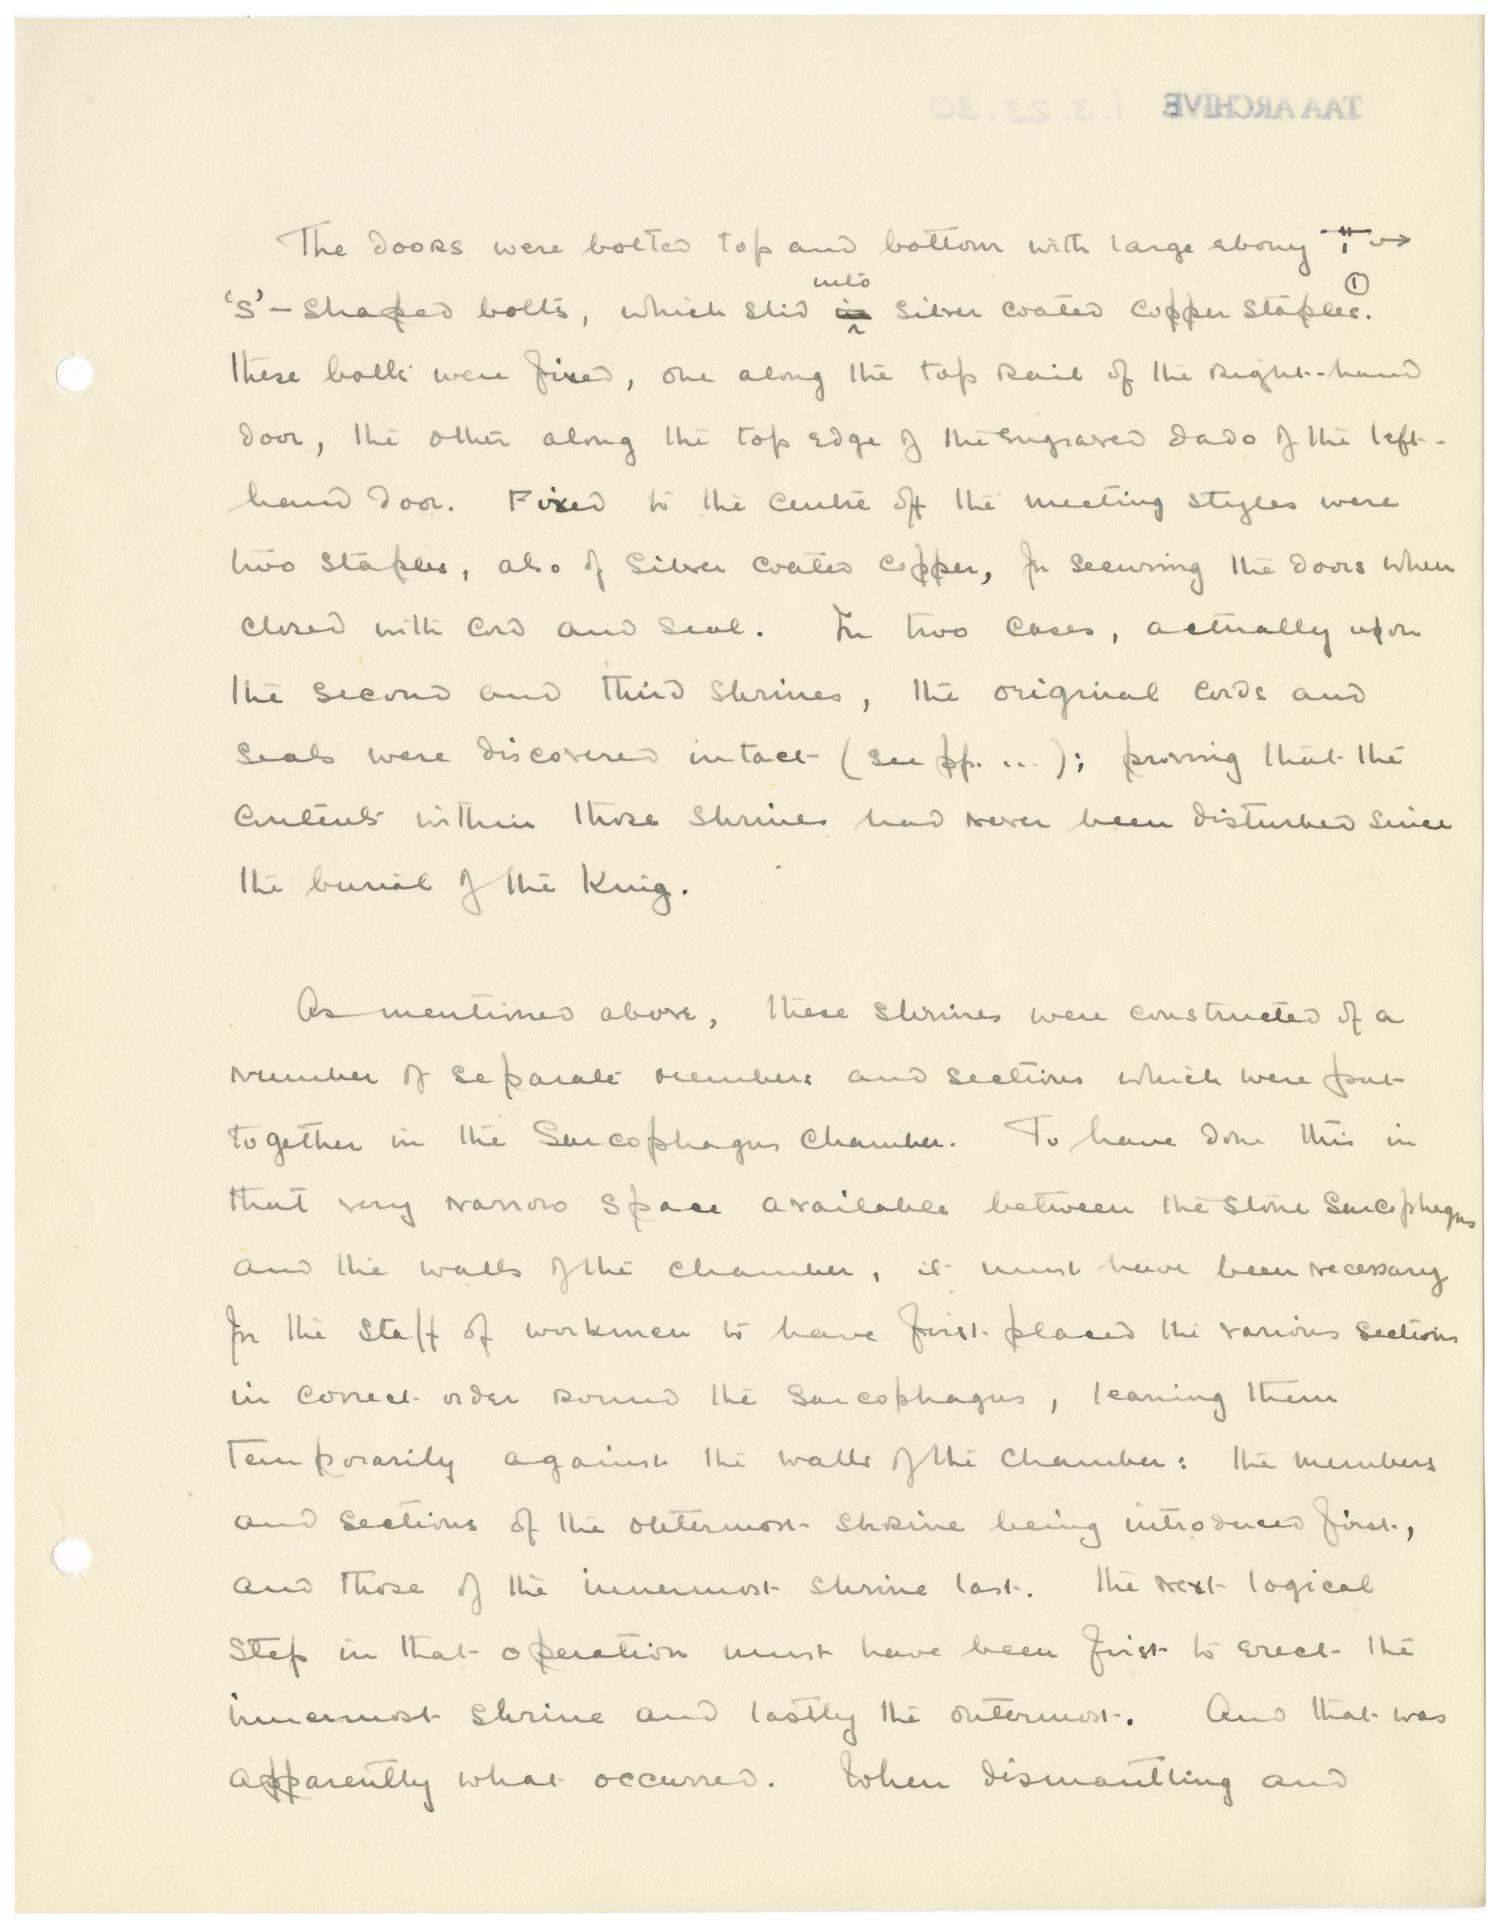 TAA ARCHIVE 1.3.23.30
The doors were bolted top and bottom with large ebony
'S'-shaped bolts, which slid in into silver coated copper staples. ①
These bolts were fixed, one along the top rail of the right-hand
door, the other along the top edge of the engraved dado of the left-
hand door. Fixed to the centre of the meeting styles were
two staples, also of silver coated copper, for securing the doors when
closed with cord and seal. In two cases, actually upon
the second and third shrines, the original cords and
seals were discovered intact (see pp. ...); proving that the
contents within those shrines had never been disturbed since
the burial of the King.
As mentioned above, these shrines were constructed of a
number of separate members and sections which were put
together in the Sarcophagus Chamber. To have done this in
that very narrow space available between the stone Sarcophagus
and the walls of the chamber, it must have been necessary
for the staff of workmen to have first placed the various sections
in correct order round the Sarcophagus, leaning them
temporarily against the walls of the chamber: the members
and sections of the outermost shrine being introduced first,
and those of the innermost shrine last. The next logical
step in that operation must have been first to erect the
innermost shrine and lastly the outermost. And that was
apparently what occurred. When dismantling and